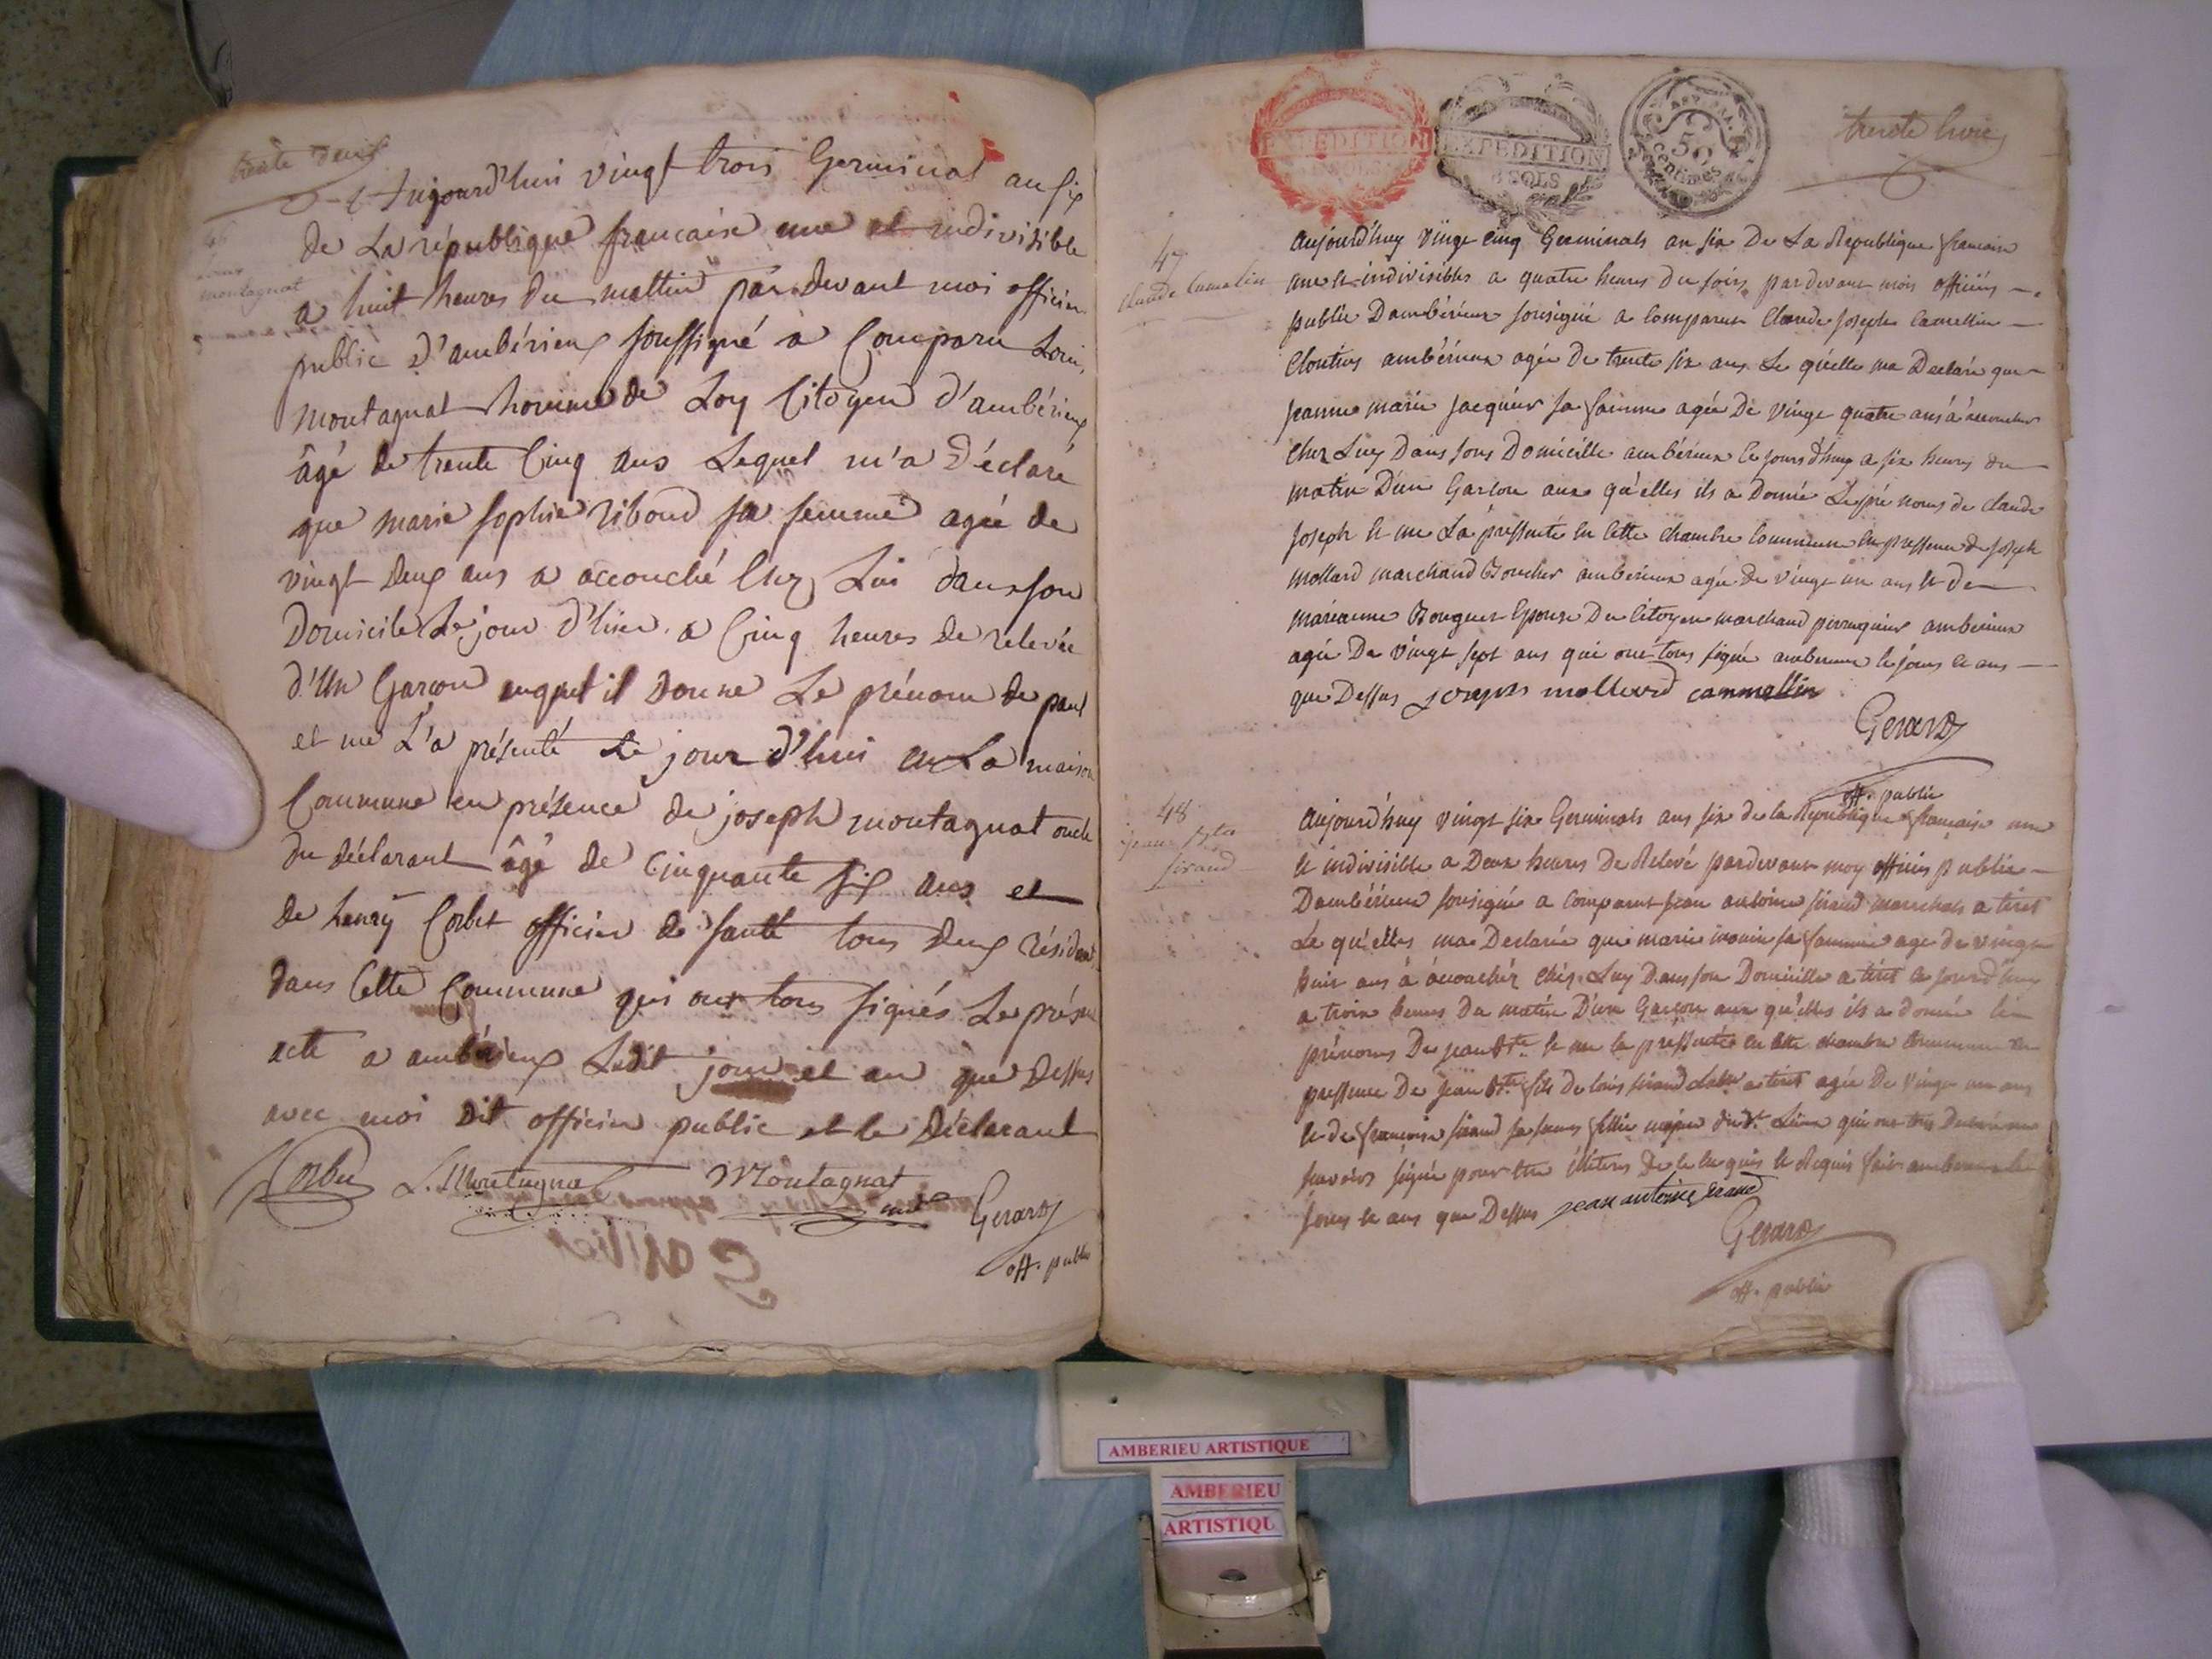 trente deux
46
montagnat
Aujourd'hui vingt trois Germinal an six
de La république francaise une et indivisible
a huit heures du mattin par devant moi officier
public d'ambérieux soussigné a Comparu Louis
montagnat homme de Loy Citoyen d'ambérieux
âgé de trente Cinq ans Lequel m'a déclaré
que marie sophie riboud sa femme agée de
vingt deux ans a accouché Chez Lui dans son
Domicile Le jour d'hier a Cinq heures de relevée
d'Un Garcon auquel il donne Le prénom de paul
et me L'a présenté Le jour d'hui en La maison
Commune en présence de joseph montagnat oncle
du déclarant âgé de Cinquante six ans et
de henry Corbet officier de santé tous deux résidant
dans Cette Commune qui ont tous signés Le présent
acte a ambérieux Ledit jour et an que dessus
avec moi dit officier public et le déclarant
Corbet L. Montagnat Montagnat Gerard
off. public
EXPEDITION
EXPEDITION
SOLS
50
centimes
trente trois
47
claude camelin
aujourd'huy vingt cinq Germinals an six De La Republique francaise
une et indivisibles a quatre heures du soirs pardevant mois officiés
public Dambérieux sousigné a comparut Claude joseph camellin
Clouties ambérieux agée De trente six ans Le quelle ma Declaré que
jeanne marie jacquier sa famme agée De vingt quatre ans a accoucher
chez Luy Dans sons Domicille ambérieux ce jours d'huy a six heures du
matin D'une Garson aux qu'elles ils a Donnée Le pré noms de claude
joseph et me La pressenté en cette chambre Commune en pressence de joseph
mollard marchand Boucher ambérieux agée De vingt un ans et de
marianne Bouguet Epouse Du Citoyen marchand perruquier ambérieux
agée De vingt sept ans qui ont tous signée ambérieux le jours et ans
que Dessus joseph mollard cammellin
Gerard
off. public
48
jean Bte
sirand
aujourd'huy vingt six Germinals ans six de la Republique francaise une
et indivisible a Deux heures De Relevé pardevant moy officiés public
Dambérieux sousignée a comparut jean antoine sirand marechals a tiret
Le qu'elles ma Declarée que marie sa famme age de vingt
huit ans à accouchér chéz Luy Dans son Domicille a tiret ce jourd'huy
a trois heures Du matin D'une Garson aux qu'elles ils a donnée les
prénoms De jean Bte et me la pressentée en cette chambre Commune en
pressence De jean Bte fils de louis sirand a tiret agée De vingt un ans
et de francoise sirand sa soeur fille majeur dud.t Lieux qui ont
savoirs signée pour être illiteres De ce enquis et Requis fait ambérieux le
jours et ans que Dessus jean antoine sirand
Gerard
off. public
AMBERIEU ARTISTIQUE
AMBERIEU
ARTISTIQU